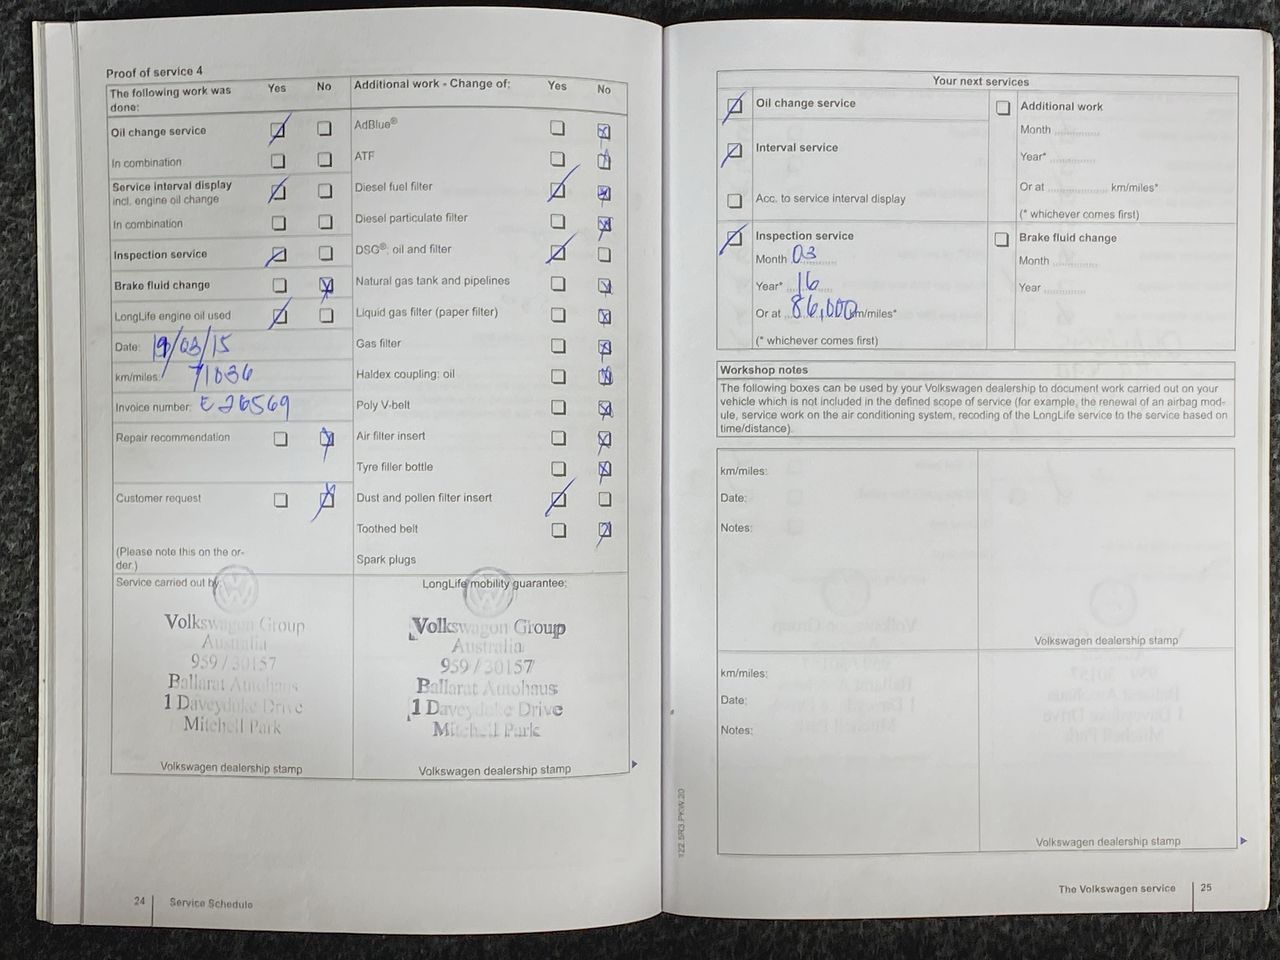 Proof of service 4
The following work was done: Yes No
Oil change service
In combination
Service interval display
incl. engine oil change
In combination
Inspection service
Brake fluid change
LongLife engine oil used
Date: 19/03/15
km/miles: 71036
Invoice number: E26569
Repair recommendation
Customer request
(Please note this on the or-
der.)
Service carried out by:
Volkswagen Group
Australia
959 / 30157
Ballarat Autohaus
1 Daveyduke Drive
Mitchell Park
Volkswagen dealership stamp
Additional work - Change of: Yes No
AdBlue®
ATF
Diesel fuel filter
Diesel particulate filter
DSG®: oil and filter
Natural gas tank and pipelines
Liquid gas filter (paper filter)
Gas filter
Haldex coupling: oil
Poly V-belt
Air filter insert
Tyre filler bottle
Dust and pollen filter insert
Toothed belt
Spark plugs
LongLife mobility guarantee:
Volkswagen Group
Australia
959 / 30157
Ballarat Autohaus
1 Daveyduke Drive
Mitchell Park
Volkswagen dealership stamp
24 Service Schedule
Your next services
Oil change service
Interval service
Acc. to service interval display
Inspection service
Month 03
Year* 16
Or at 86,000 km/miles*
(* whichever comes first)
Additional work
Month
Year*
Or at km/miles*
(* whichever comes first)
Brake fluid change
Month
Year
Workshop notes
The following boxes can be used by your Volkswagen dealership to document work carried out on your
vehicle which is not included in the defined scope of service (for example, the renewal of an airbag mod-
ule, service work on the air conditioning system, recoding of the LongLife service to the service based on
time/distance).
km/miles:
Date:
Notes:
Volkswagen dealership stamp
km/miles:
Date:
Notes:
Volkswagen dealership stamp
122.5R3.PKW.20
The Volkswagen service 25